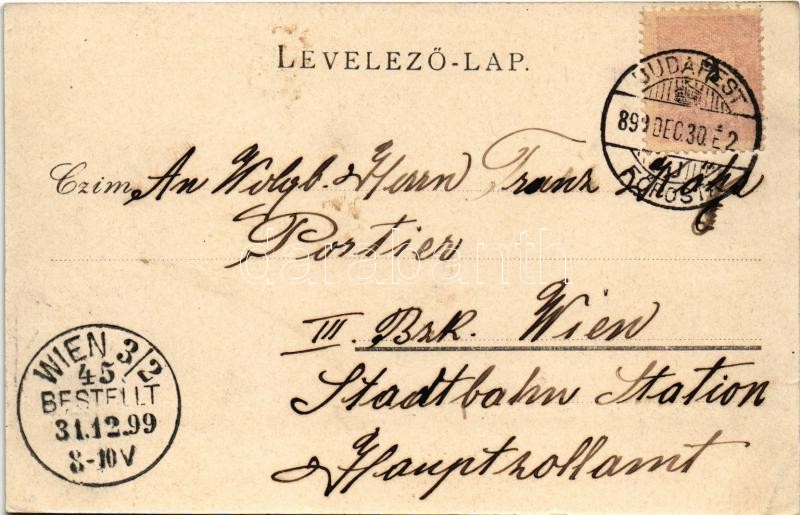 LEVELEZŐ-LAP.
BUDAPEST
899 DEC. 30. E 2
FŐPOSTA
Czim An Wolgb. Herrn Franz
Portier
darabanth
III. Bzk. Wien
Stadtbahn Station
Hauptzollamt
WIEN 3/2
45
BESTELLT
31.12.99
8-10V